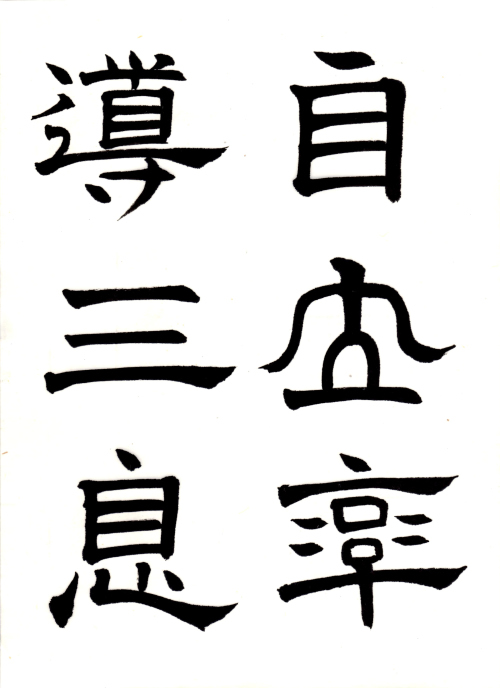 自立率
導三息